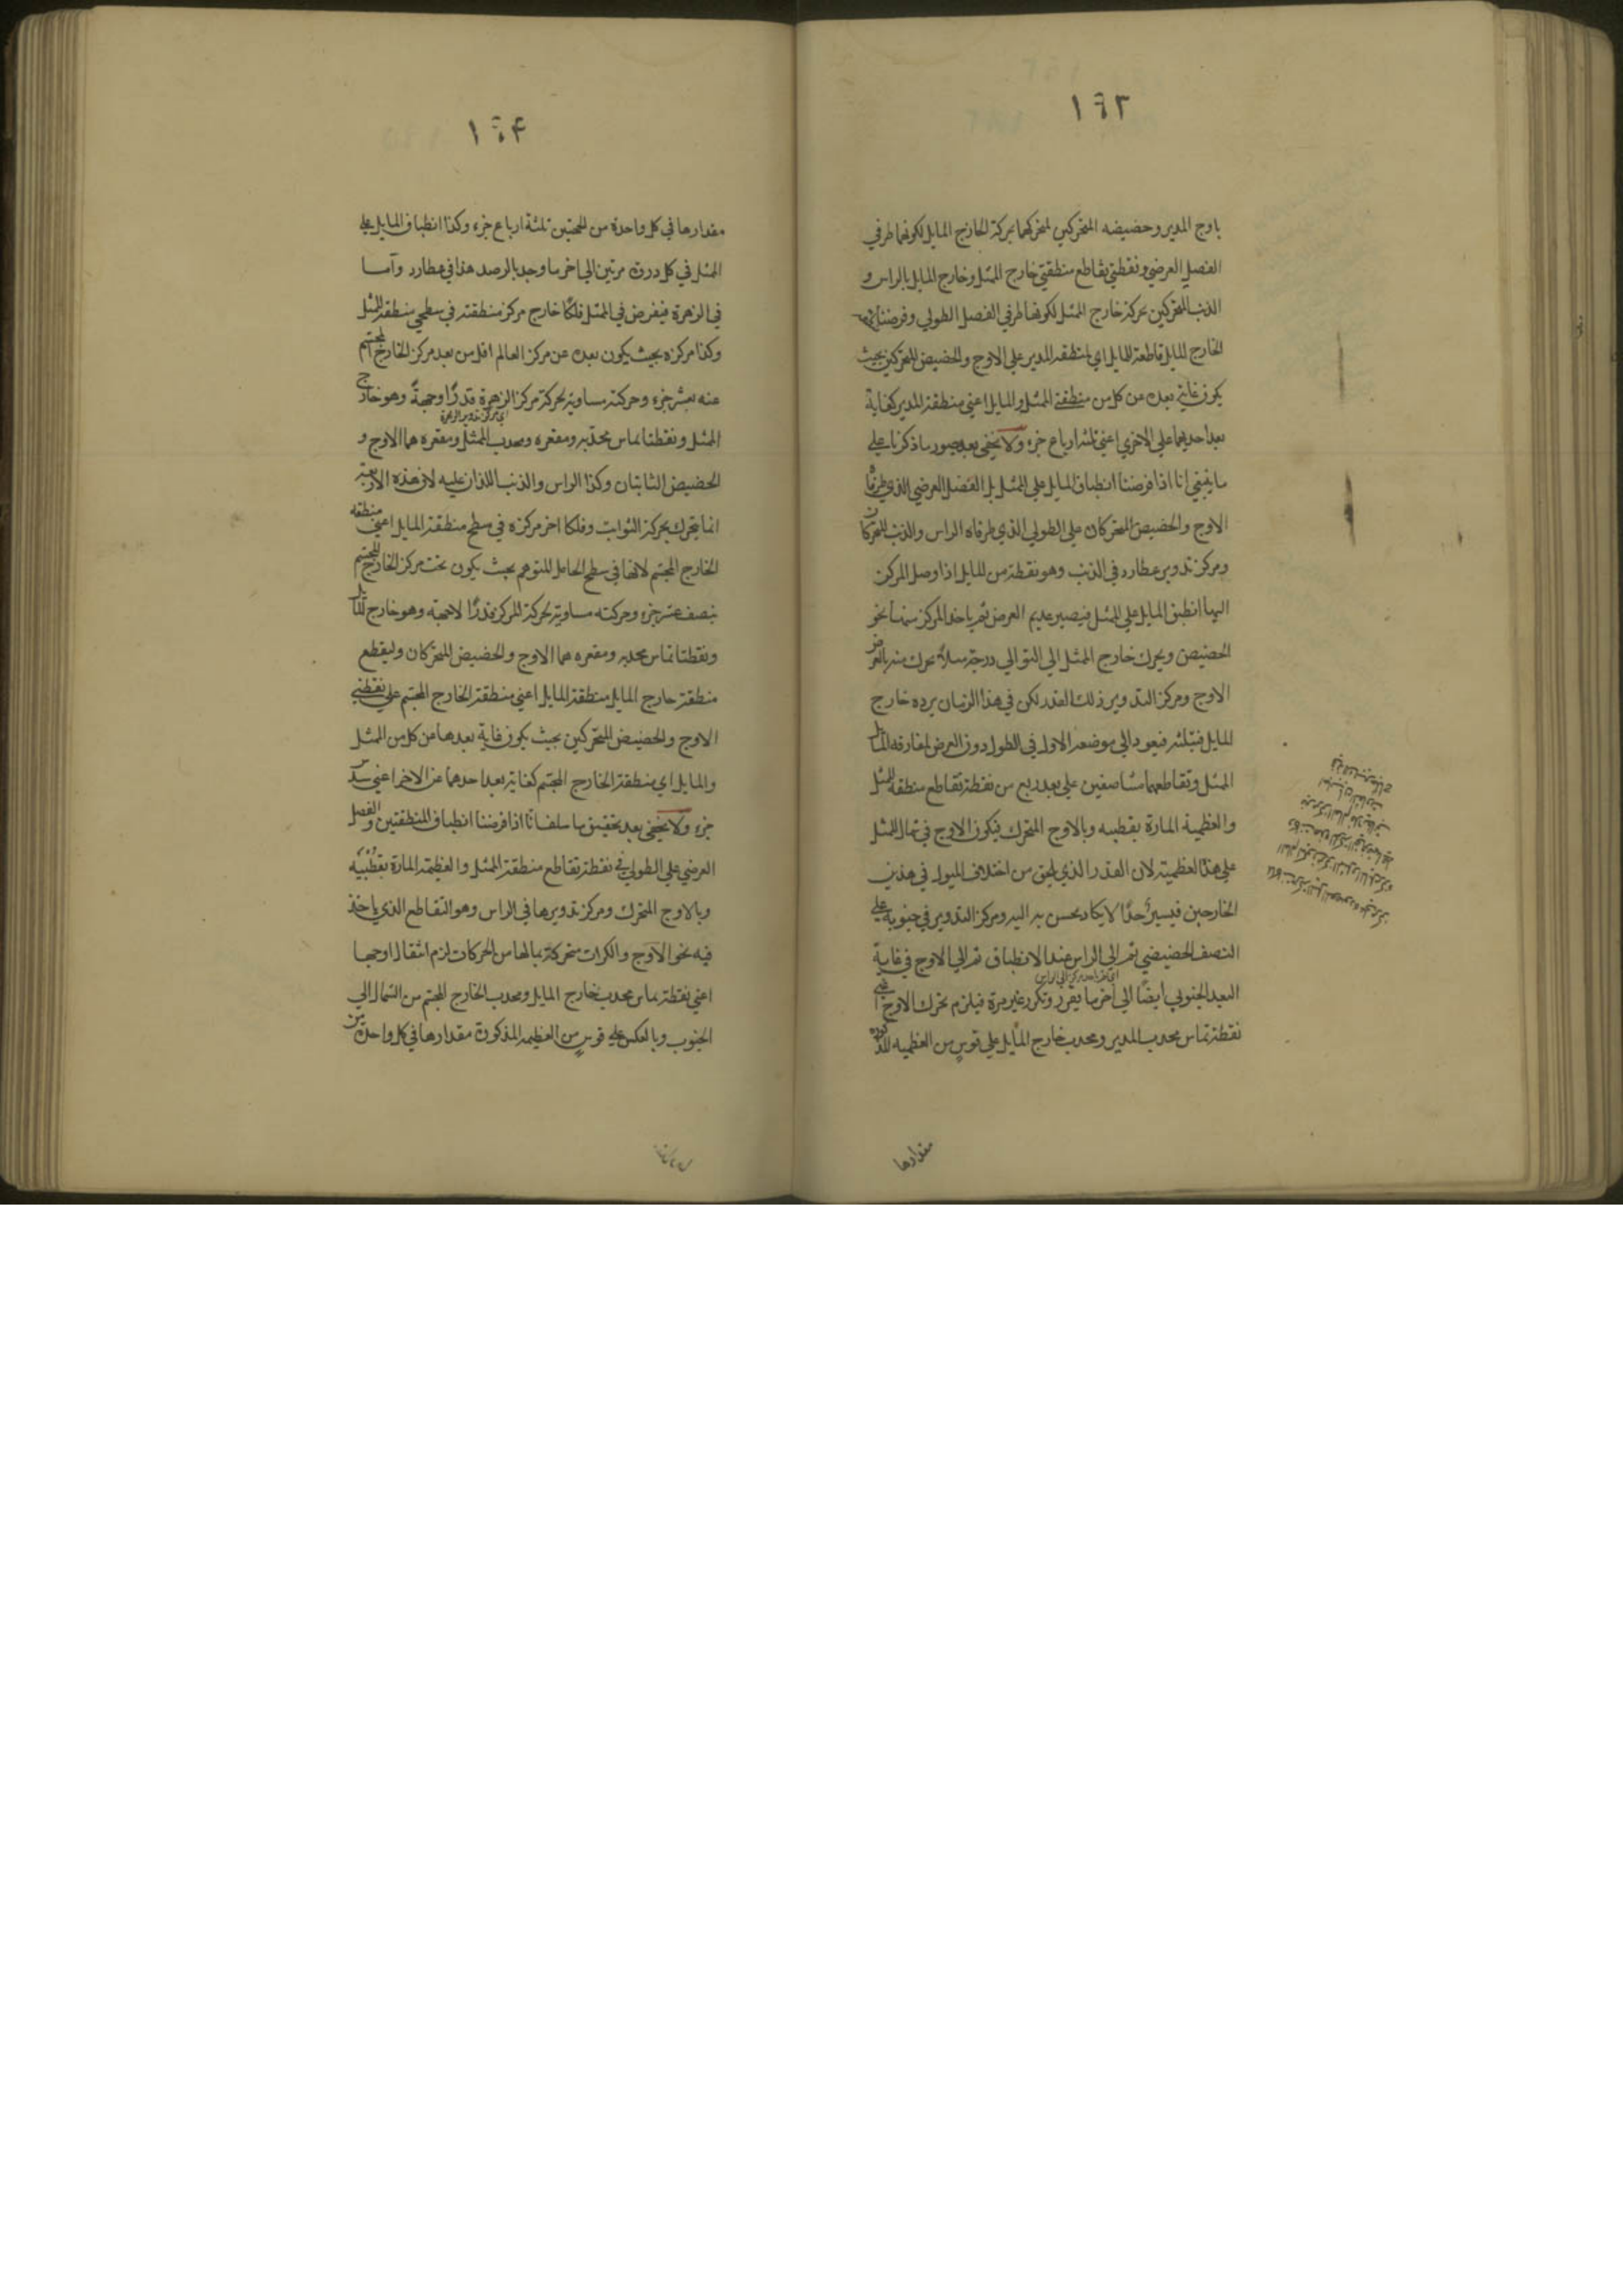 ١٦٣
باوج المدير وحضيضه المتحركين لتحركهما بحركة الخارج المايل لكونهما طرفي
الفصل العرضي ونقطتي تقاطع منطقتي خارج الممثل وخارج المايل بالراس و
الذنب المتحركين بحركة خارج الممثل لكونهما طرفي الفصل الطولي وفرضنا
الخارج المايل قاطعة للمايل اي لمنطقة المدير علي الاوج والحضيض المتحركين بحيث
يكون غاية بعده عن كل من منطقتي الممثل والمايل اعني منطقة المدير كغاية
بعد احديهما علي الاخري اعني ثلثة ارباع جزء ولا يخفى بعد تصور ما ذكرنا علي
ما ينبغي انا اذا فرضنا انطباق المايل علي الممثل بل الفصل العرضي الذي طرفاه
الاوج والحضيض المتحركان علي الطولي الذي طرفاه الراس والذنب المتحركان
ومركز تدوير عطارد في الذنب وهو نقطة من المايل اذا وصل المركز
اليها انطبق المايل علي الممثل فيصير عديم العرض ثم ياخذ المركز منها نحو
الحضيض ويحرك خارج الممثل الي التوالي درجة مثلا تحرك منه بالعرض
الاوج ومركز التدوير ذلك القدر لكن في هذا الزمان يرده خارج
المايل فبمثله فيعود الي موضعه الاول في الطول دون العرض لمفارقة المايل
الممثل وتقاطعهما متناصفين علي بعد ربع من نقطة تقاطع منطقة الممثل
والعظيمة المارة بقطبيه وبالاوج المتحرك فيكون الاوج في شمال الممثل
علي هذا العظيمة لان القدر الذي يلحق من اختلاف الميول في هذين
الخارجين فيسير جدًا لا يكاد يحس به اليه ومركز التدوير في جنوبه علي
النصف الحضيضي ثم الي الراس عند الانطباق ثم الي الاوج في غاية
البعد الجنوبي ايضًا الي اخر ما يقرر وتكرر غير مرة فيلزم تحرك الاوج اعني
نقطة تماس محدب المدير ومحدب خارج المايل علي قوس من العظيمة المذكورة
مقدارها
١٦٤
مقدارها في كل واحدة من الجهتين ثلثة ارباع جزء وكذا انطباق المايل علي
الممثل في كل دورة مرتين الي اخر ما وجد بالرصد هذا في عطارد واما
في الزهرة فيفرض في الممثل فلكًا خارج مركز منطقته في سطحي منطقة الممثل
وكذا مركزه بحيث يكون بعده عن مركز العالم اقل من بعد مركز الخارج المجسم
عنه بعشر جزء وحركته مساوية لحركة مركز الزهرة قدرًا وجهةً وهو خارج
اي مركز تدوير الزهرة
الممثل ونقطتا تماس محدّبه ومقعره ومحدب الممثل ومقعره هما الاوج و
الحضيض الثابتان وكذا الراس والذنب اللذان عليه لان هذه الاربعة
انما يتحرك بحركة الثوابت وفلكا اخر مركزه في سطح منطقة المايل اعني منطقة
الخارج المجسم لانها في سطح الحامل المتوهم بحيث يكون تحت مركز الخارج المجسم
بنصف عشر جزء وحركته مساوية لحركة المركز قدرًا لا جهة وهو خارج المايل
ونقطتا تماس محدبه ومقعره هما الاوج والحضيض المتحركان وليقطع
منطقة خارج المايل منطقة المايل اعني منطقة الخارج المجسم علي نقطتي
الاوج والحضيض المتحركين بحيث يكون غاية بعدها عن كل من الممثل
والمايل اي منطقة الخارج المجسم كغاية بعد احدهما عن الاخر اعني سدس
جزء ولا يخفى بعد تحقيق ما سلف انا اذا فرضنا انطباق المنطقتين والفصل
العرضي علي الطولي في نقطة تقاطع منطقة الممثل والعظيمة المارة بقطبيه
وبالاوج المتحرك ومركز تدويرها في الراس وهو التقاطع الذي ياخذ
فيه نحو الاوج والكرات متحركة بمالها من الحركات لزم انتقال اوجها
اعني نقطة تماس محدب خارج المايل ومحدب الخارج المجسم من الشمال الي
الجنوب وبالعكس علي قوس من العظيمه المذكورة مقدارها في كل واحدة من